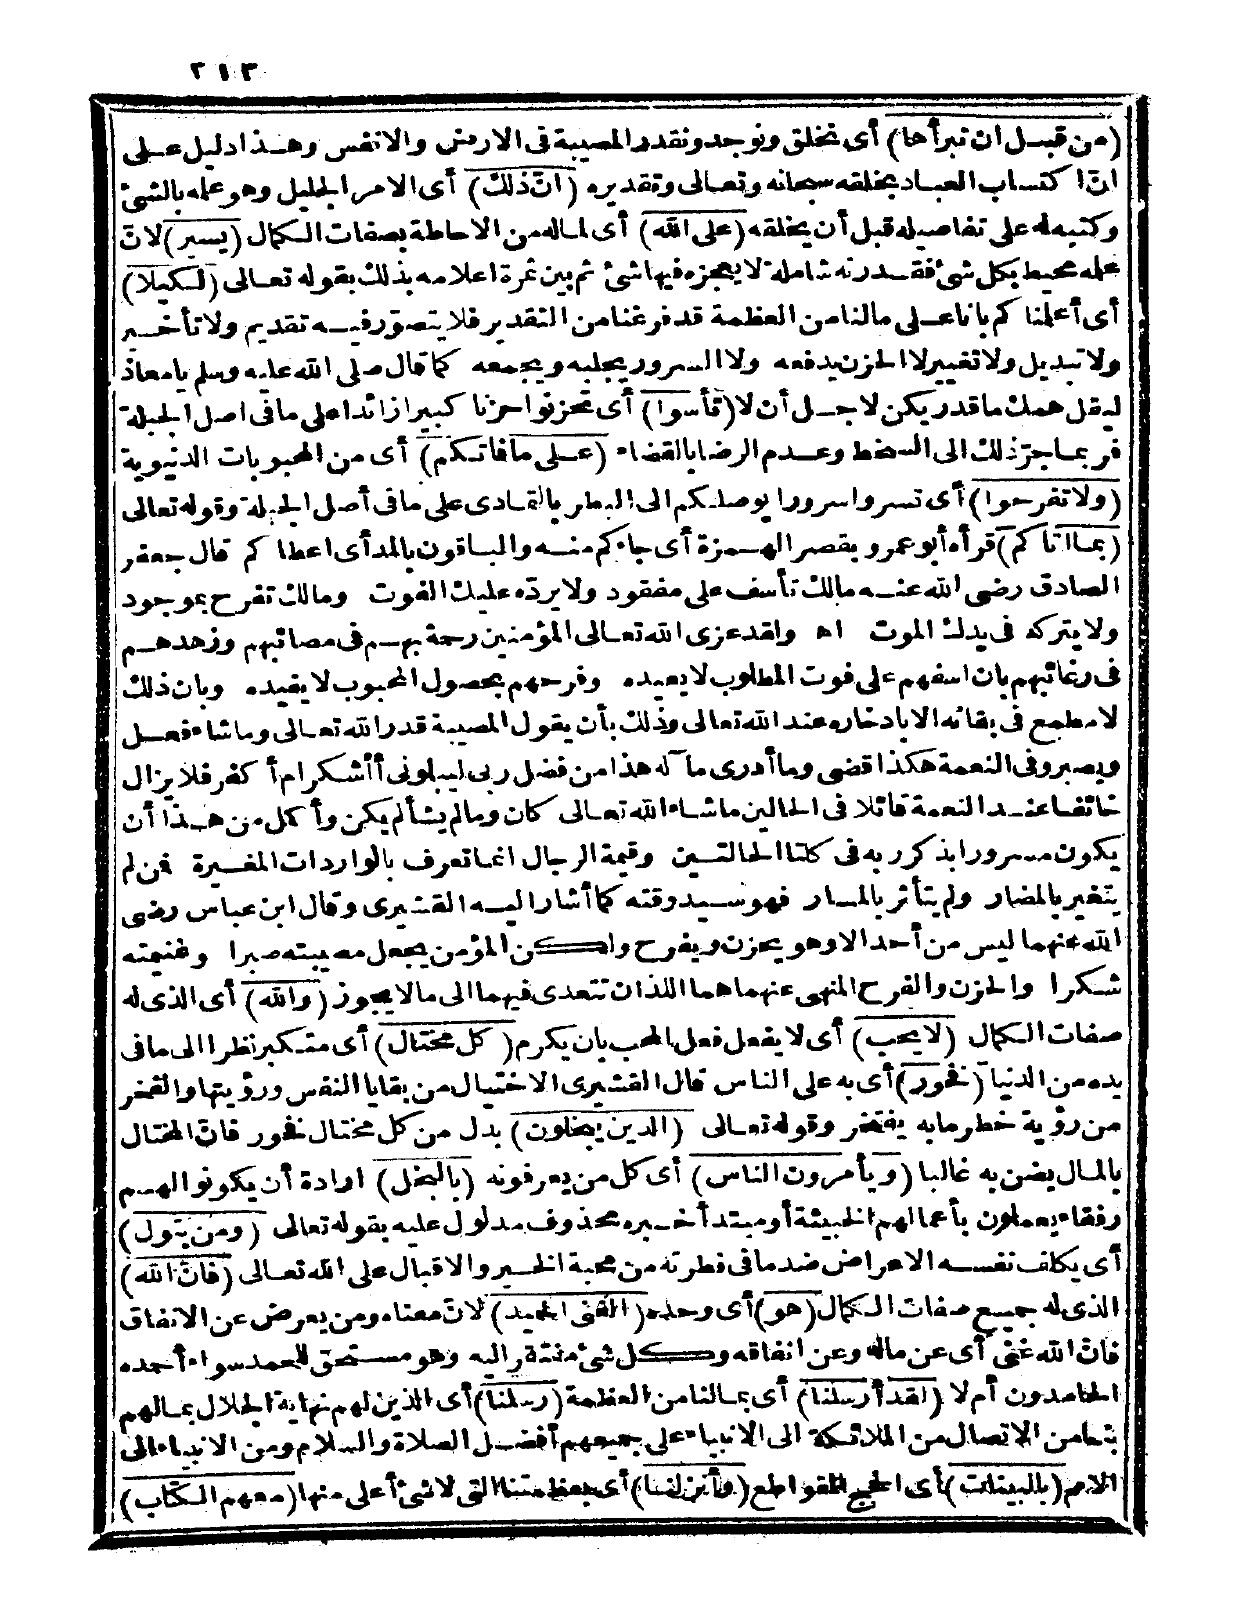 ٢١٣
(من قبل ان نبرأها) أى نخلق ونوجد ونقدر المصيبة فى الارض والانفس وهذا دليل على
انّ اكتساب العباد بخلقه سبحانه وتعالى وتقديره (انّ ذلك) أى الامر الجليل وهو علمه بالشئ
وكتبه له على تفاصيله قبل أن يخلقه (على الله) أى لماله من الاحاطة بصفات الكمال (يسير) لانّ
علمه محيط بكل شئ فقدرته شاملة لا يعجزه فيها شئ ثم بين ثمرة اعلامه بذلك بقوله تعالى (لكيلا)
أى أعلمنا كم بانا على مالنا من العظمة قد فرغنا من التقدير فلا يتصوّر فيه تقديم ولا تأخير
ولا تبديل ولا تغيير لا الحزن يدفعه ولا السرور يجلبه ويجمعه كما قال صلى الله عليه وسلم يا معاذ
ليقل همك ما قدر يكن لاجل أن لا (تأسوا) أى تحزنوا حزنا كبيرا زائدا على ما فى اصل الجبلة
فربما جرّ ذلك الى السخط وعدم الرضا بالقضاء (على ما فاتكم) أى من المحبوبات الدنيوية
(ولا تفرحوا) أى تسروا سرورا يوصلكم الى البطر بالتمادى على ما فى أصل الجبلة وقوله تعالى
(بما اتاكم) قرأه أبو عمرو بقصر الهمزة أى جاءكم منه والباقون بالمد أى اعطا كم قال جعفر
الصادق رضى الله عنه مالك تأسف على مفقود ولا يردّه عليك الفوت ومالك تفرح بموجود
ولا يتركه فى يدك الموت اه ولقد عزى الله تعالى المؤمنين رحمة بهم فى مصائبهم وزهدهم
فى رغائبهم بان اسفهم على فوت المطلوب لا يعيده وفرحهم بحصول المحبوب لا يفيده وبان ذلك
لا مطمع فى بقائه الا بادخاره عند الله تعالى وذلك بأن يقول المصيبة قدر الله تعالى وما شاء فعل
ويصبر وفى النعمة هكذا قضى وما أدرى ما آله هذا من فضل ربى ليبلونى أأشكر ام أكفر فلا يزال
خائفا عند النعمة قائلا فى الحالين ما شاء الله تعالى كان وما لم يشأ لم يكن وأكل من هذا أن
يكون مسرورا بذكر ربه فى كلتا الحالتين وقيمة الرجال انما تعرف بالواردات المغيرة فمن لم
يتغير بالمضار ولم يتأثر بالمسار فهو سيد وقته كما أشار اليه القشيرى وقال ابن عباس رضى
الله عنهما ليس من أحد الا وهو يحزن ويفرح ولكن المؤمن يجعل مصيبته صبرا وغنيمته
شكرا والحزن والفرح المنهى عنهما هما اللذان تتعدى فيهما الى ما لا يجوز (والله) أى الذى له
صفات الكمال (لا يحب) أى لا يفعل فعل المحب بان يكرم (كل مختال) أى متكبر نظرا الى ما فى
يده من الدنيا (فخور) أى به على الناس قال القشيرى الاختيال من بقايا النفس ورؤيتها والفخر
من رؤية خطر ما به يفتخر وقوله تعالى (الذين يبخلون) بدل من كل مختال فخور فانّ المختال
بالمال يضن به غالبا (ويأمرون الناس) أى كل من يعرفونه (بالبخل) ارادة أن يكونوا لهم
رفقاء يعملون بأعمالهم الخبيثة أو مبتدأ خبره محذوف مدلول عليه بقوله تعالى (ومن يتول)
أى يكلف نفسه الاعراض ضد ما فى فطرته من محبة الخير والاقبال على الله تعالى (فانّ الله)
الذى له جميع صفات الكمال (هو) أى وحده (الغنى الحميد) لانّ معناه ومن يعرض عن الانفاق
فانّ الله غنىّ أى عن ماله وعن انفاقه وكل شئ مفتقر اليه وهو مستحق للحمد سواء أحمده
الحامدون أم لا (لقد أرسلنا) أى بما لنا من العظمة (رسلنا) أى الذين لهم نهاية الجلال بما لهم
بنا من الاتصال من الملائكة الى الانبياء على جميعهم أفضل الصلاة والسلام ومن الانبياء الى
الامم (بالبينات) أى الحجج القواطع (وأنزلنا) أى بعظمتنا التى لا شئ أعلى منها (معهم الكتاب)